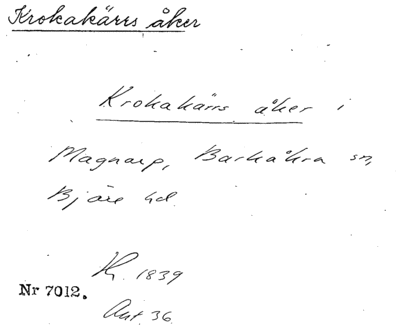 Krokakärrs åker
Krokakärrs åker i
Magnarp, Barkåkra sn,
Bjäre hd.
Kr. 1839
Nr 7012.
Ant. 36